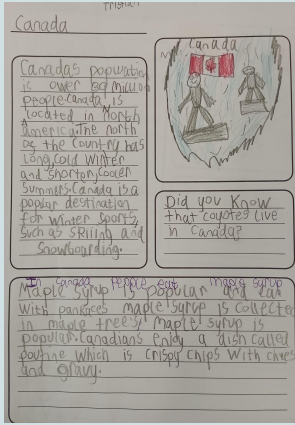 Tristan
Canada
Canadas popuation
is over 30 million
people.Canada is
located in North
America.The north
of the country has
long,cold winter
and shorter,cooler
summers.Canada is a
popular destination
for winter sports,
such as skiing and
snowboarding.
Canada
Did you know
that coyotes live
in Canada?
In Canada People eat maple syrup
Maple syrup is popular and eat
with pankaces maple syrup is collected
in maple trees, maple syrup is
popular.Canadians enjoy a dish called
poutine which is crispy chips with chees
and gravy.